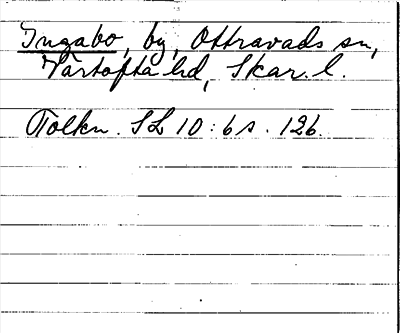 Ingabo, by, Ottravads sn,
Vartofta hd, Skar. l.
Tolkn. SL 10:6 s. 126.